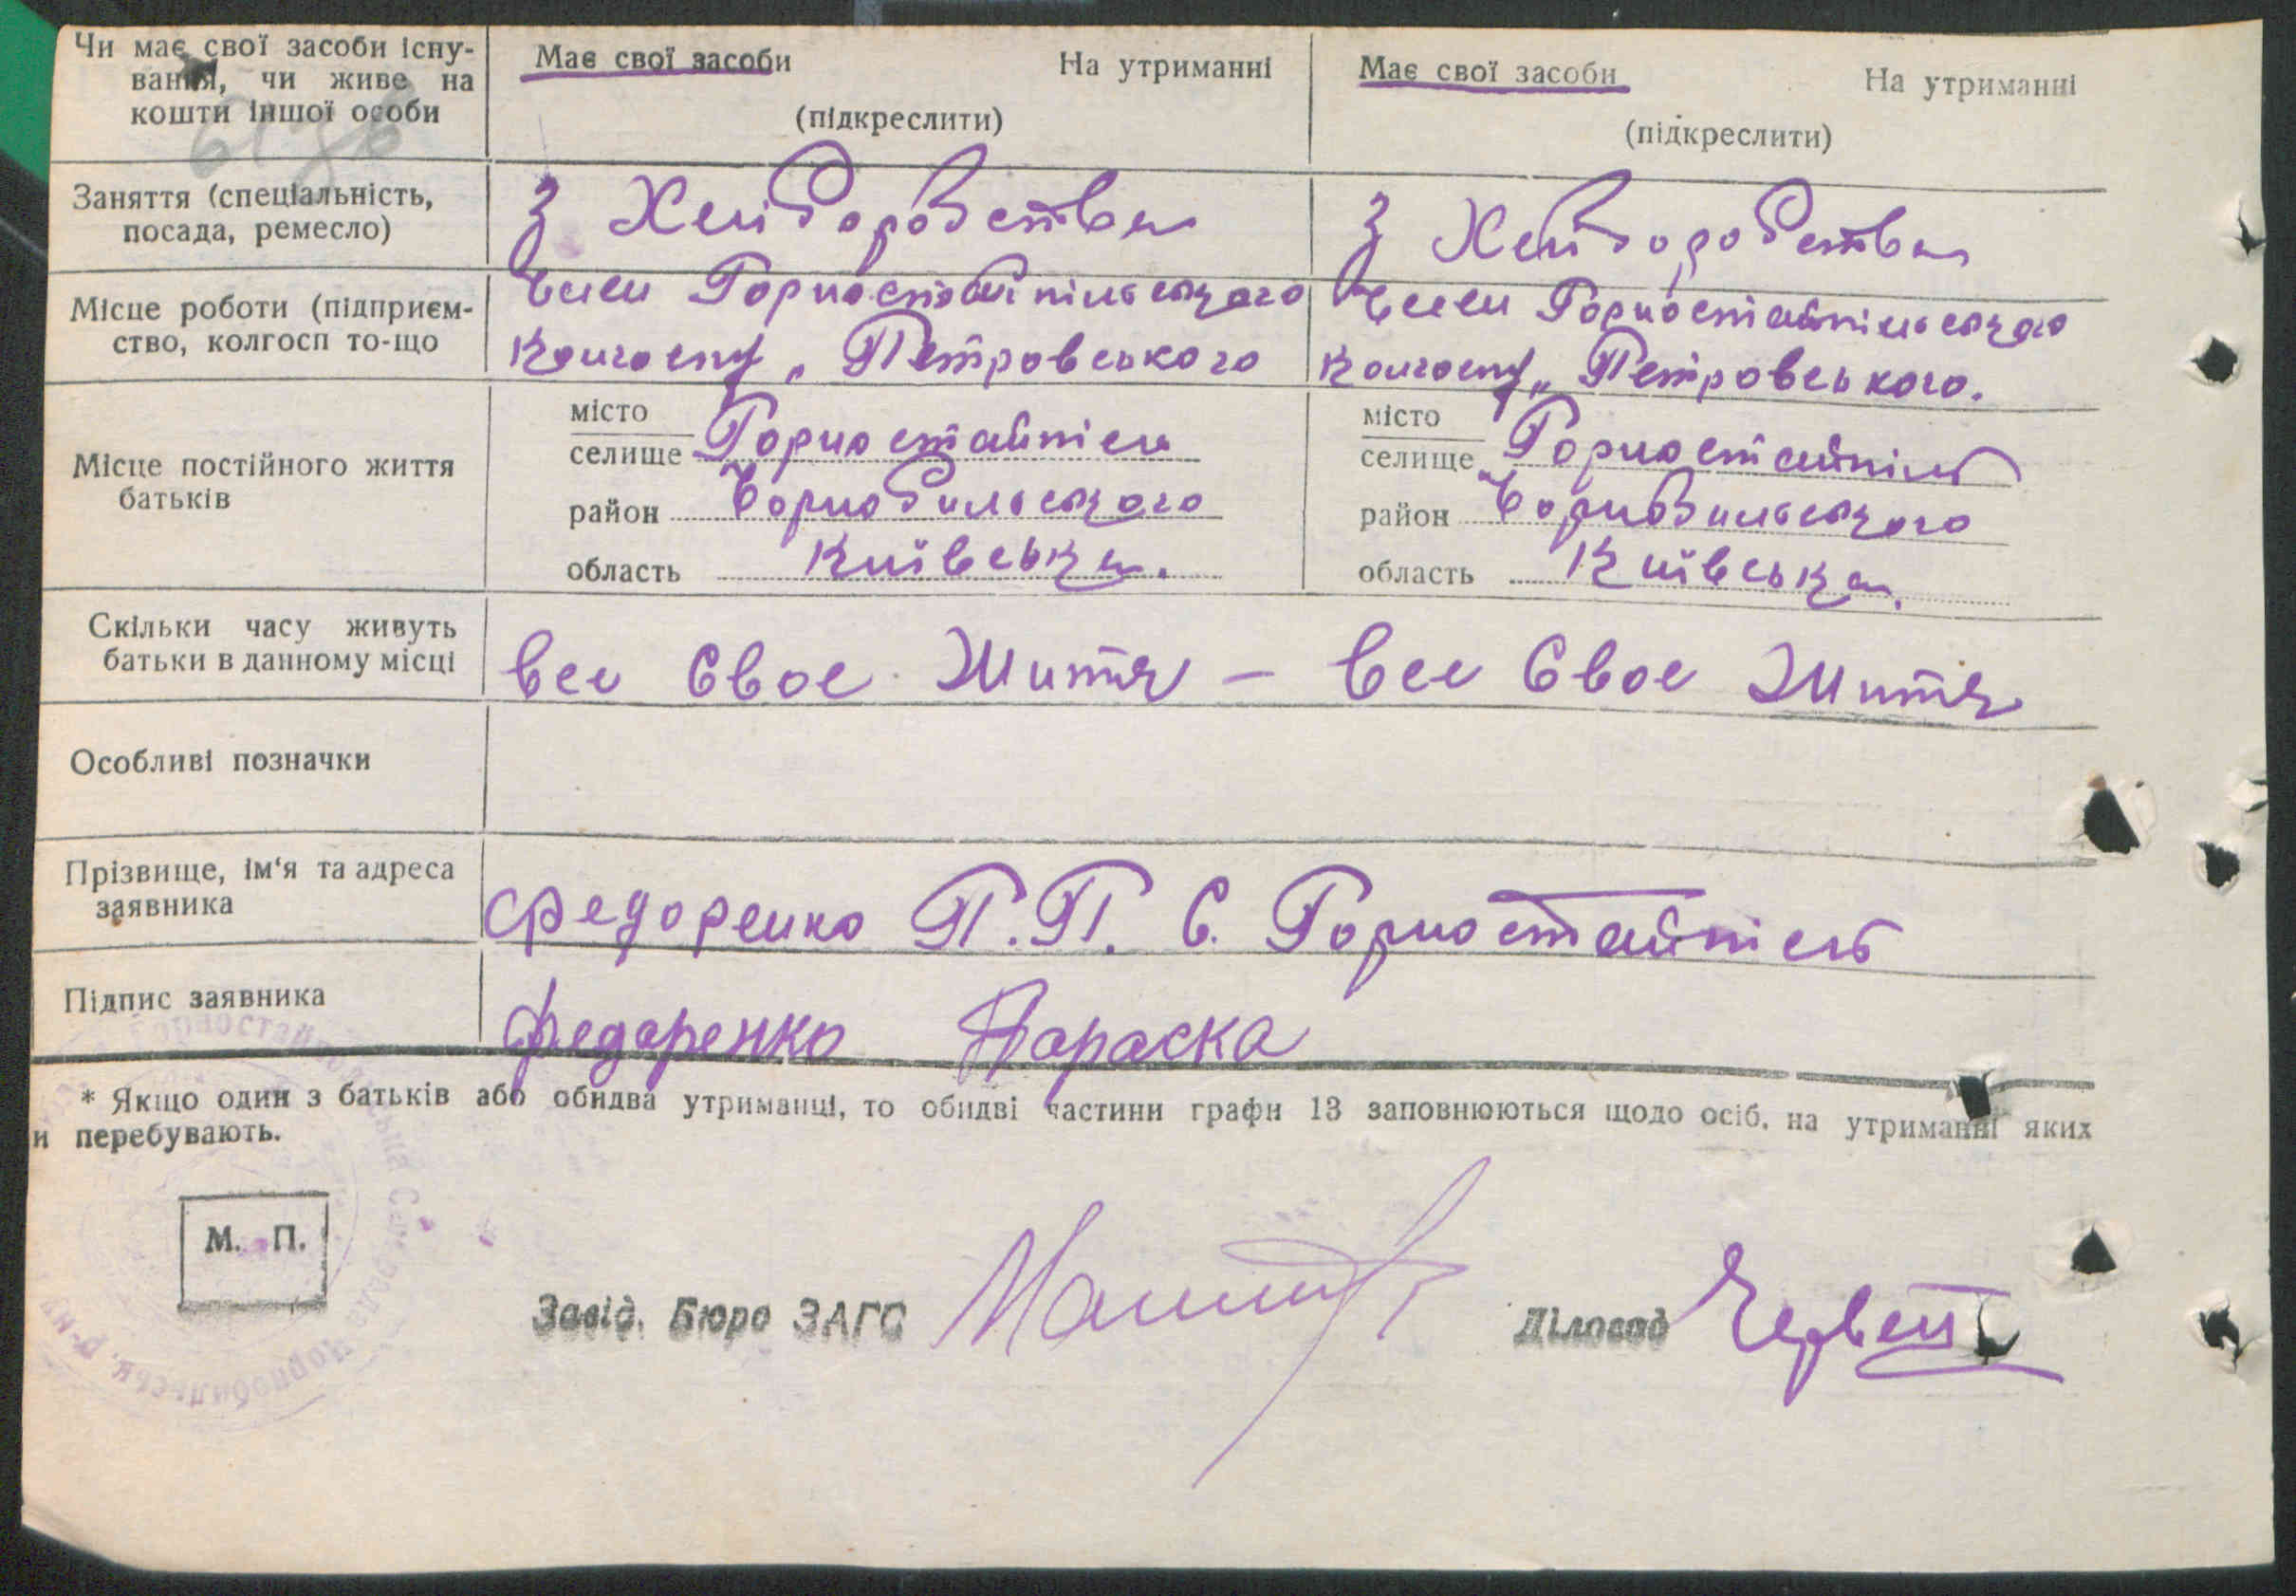 Чи має свої засоби існу- Має свої засоби На утриманні Має свої засоби На утриманні
вання, чи живе на
кошти іншої особи (підкреслити) (підкреслити)
Заняття (спеціальність, З Хлідоробства З Хліборобства
посада, ремесло)
Місце роботи (підприєм- Член Горностайпільського Член Горностайпільського
ство, колгосп то-що Колгоспу „ Петровського Колгоспу „ Петровського.
місто місто
Місце постійного життя селище Горностайпіль селище Горностайпіль
батьків район Чорнобильського район Чорнобильського
область Київська. область Київська.
Скільки часу живуть
батьки в данному місці Все Свое Життя – Все Свое Життя
Особливі позначки
Прізвище, ім'я та адреса
заявника Федоренко П.П. С. Горностайпіль
Підпис заявника Федоренко Параска
* Якщо один з батьків або обидва утриманці, то обидві частини графи 13 заповнюються щодо осіб, на утриманні яких
и перебувають.
М. П.
Завід. Бюро ЗАГС Діловод